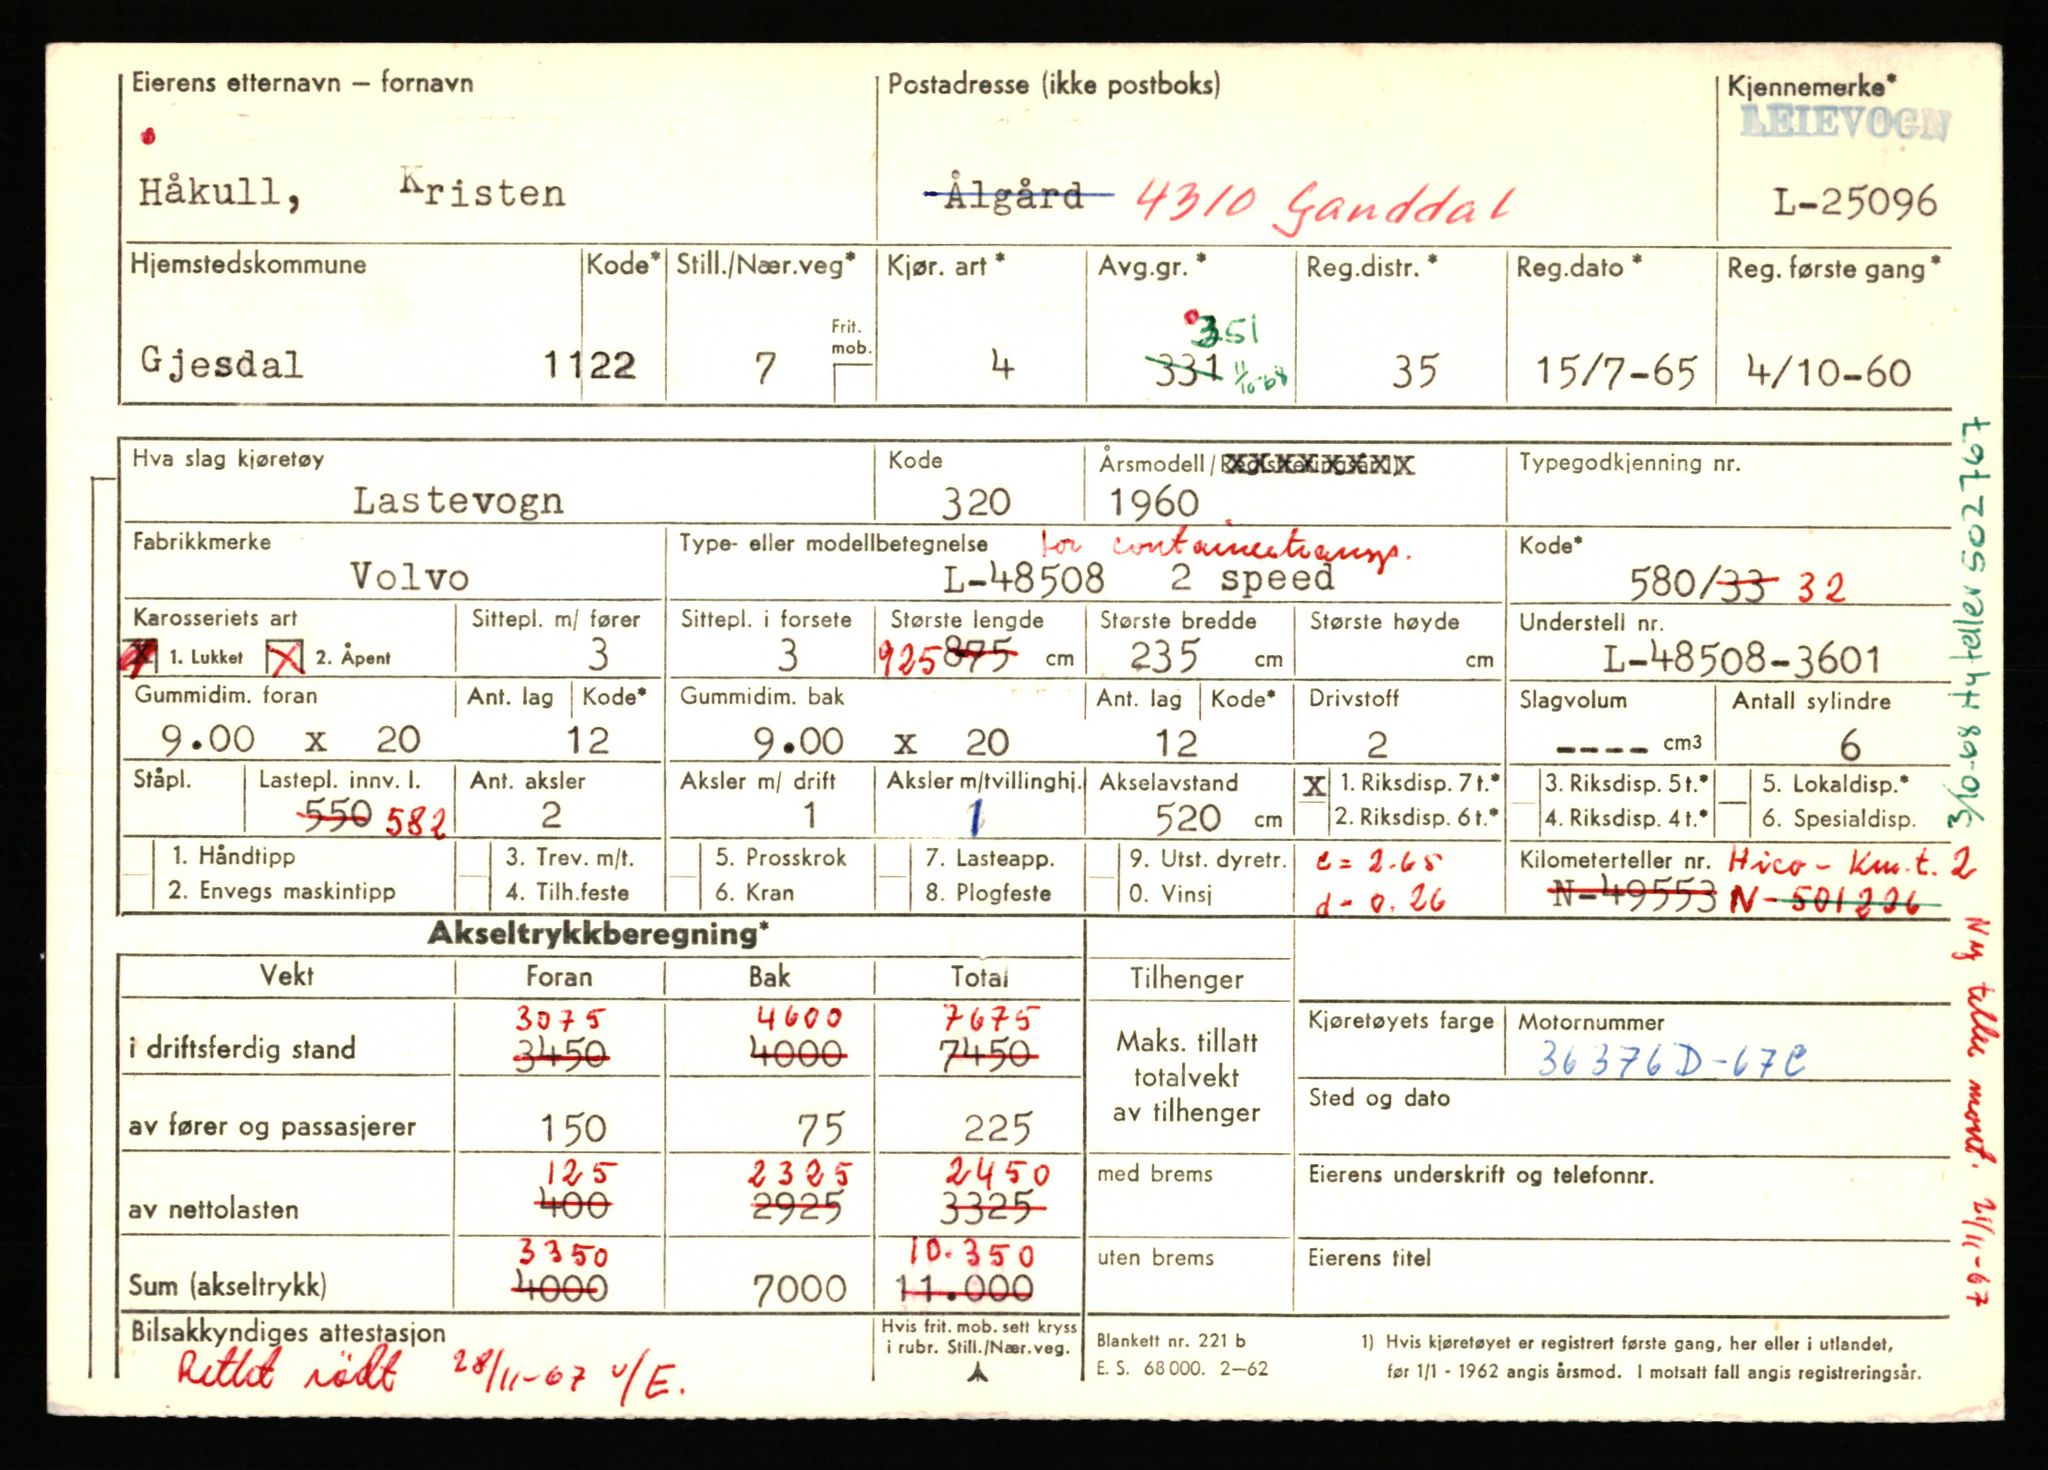 Eierens etternavn – fornavn
Postadresse (ikke postboks)
Kjennemerke*
LEIEVOGN
Håkull, Kristen
Ålgård 4310 Ganddal
L-25096
Hjemstedskommune
Kode*
Still./Nær.veg*
Kjør. art*
Avg.gr.*
Reg.distr.*
Reg.dato*
Reg. første gang*
Frit. mob.
351
Gjesdal
1122
7
4
331
11/10-68
35
15/7-65
4/10-60
Hva slag kjøretøy
Kode
Årsmodell/
Typegodkjenning nr.
Lastevogn
320
1960
Fabrikkmerke
Type- eller modellbetegnelse for containertransp.
Kode*
Volvo
L-48508 2 speed
580/33 32
Karosseriets art
Sittepl. m/ fører
Sittepl. i forsete
Største lengde
Største bredde
Største høyde
Understell nr.
X 1. Lukket X 2. Åpent
3
3
925 875 cm
235 cm
cm
L-48508-3601
Gummidim. foran
Ant. lag
Kode*
Gummidim. bak
Ant. lag
Kode*
Drivstoff
Slagvolum
Antall sylindre
9.00 x 20
12
9.00 x 20
12
2
---- cm3
6
Ståpl.
Lastepl. innv. l.
Ant. aksler
Aksler m/ drift
Aksler m/tvillinghj.
Akselavstand
X 1. Riksdisp. 7 t.*
3. Riksdisp. 5 t.*
5. Lokaldisp.*
550 582
2
1
1
520 cm
2. Riksdisp. 6 t.*
4. Riksdisp. 4 t.*
6. Spesialdisp.
1. Håndtipp
3. Trev. m/t.
5. Prosskrok
7. Lasteapp.
9. Utst. dyretr.
c = 2.65
Kilometerteller nr. Hico - Km.t. 2
2. Envegs maskintipp
4. Tilh.feste
6. Kran
8. Plogfeste
0. Vinsj
d = 0.26
N-49553 N-501236
Akseltrykkberegning*
Vekt
Foran
Bak
Total
Tilhenger
3075
4600
7675
Kjøretøyets farge
Motornummer
i driftsferdig stand
3450
4000
7450
Maks. tillatt
totalvekt
av tilhenger
36376D-67C
Sted og dato
av fører og passasjerer
150
75
225
125
2325
2450
med brems
Eierens underskrift og telefonnr.
av nettolasten
400
2925
3325
3350
10.350
uten brems
Eierens titel
Sum (akseltrykk)
4000
7000
11.000
Bilsakkyndiges attestasjon
Hvis frit. mob. sett kryss
i rubr. Still./Nær.veg.
Rettet rødt 28/11-67 u/E.
Blankett nr. 221 b
E. S. 68 000. 2–62
1) Hvis kjøretøyet er registrert første gang, her eller i utlandet,
før 1/1 - 1962 angis årsmod. I motsatt fall angis registreringsår.
3/10-68 Ny teller 502767
Ny teller mont. 21/11-67